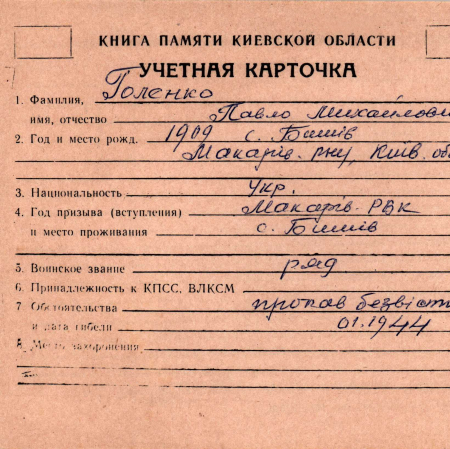 КНИГА ПАМЯТИ КИЕВСКОЙ ОБЛАСТИ
УЧЕТНАЯ КАРТОЧКА
1. Фамилия, Голенко
имя, отчество Павло Михайлови
2. Год и место рожд. 1909 с. Бишів
Макарів. р-ну, Київ. об
3. Национальность укр.
4. Год призыва (вступления) Макарів. РВК
и место проживания с. Бишів
5. Воинское звание ряд
6. Принадлежность к КПСС, ВЛКСМ
7 Обстоятельства пропав безвіст
и дата гибели 01.1944
8. Место захоронения